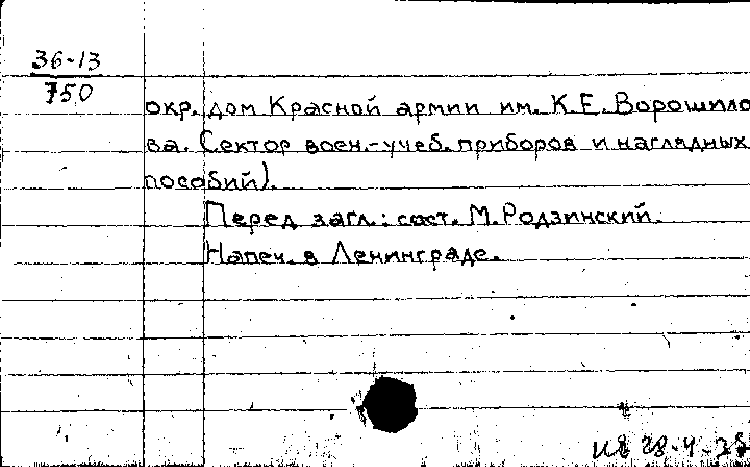 36-13
750
окр. дом Красной армии им. К.Е. Ворошило
ва. Сектор воен.-учеб. приборов и наглядных
пособий).
Перед загл.: сост. М. Родзинский.
Напеч. в Ленинграде.
28-4-38